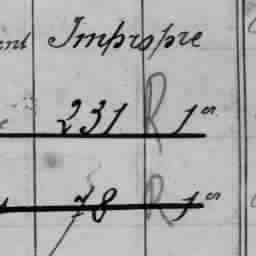 ent Impropre
231 R 1er
78 R 1er